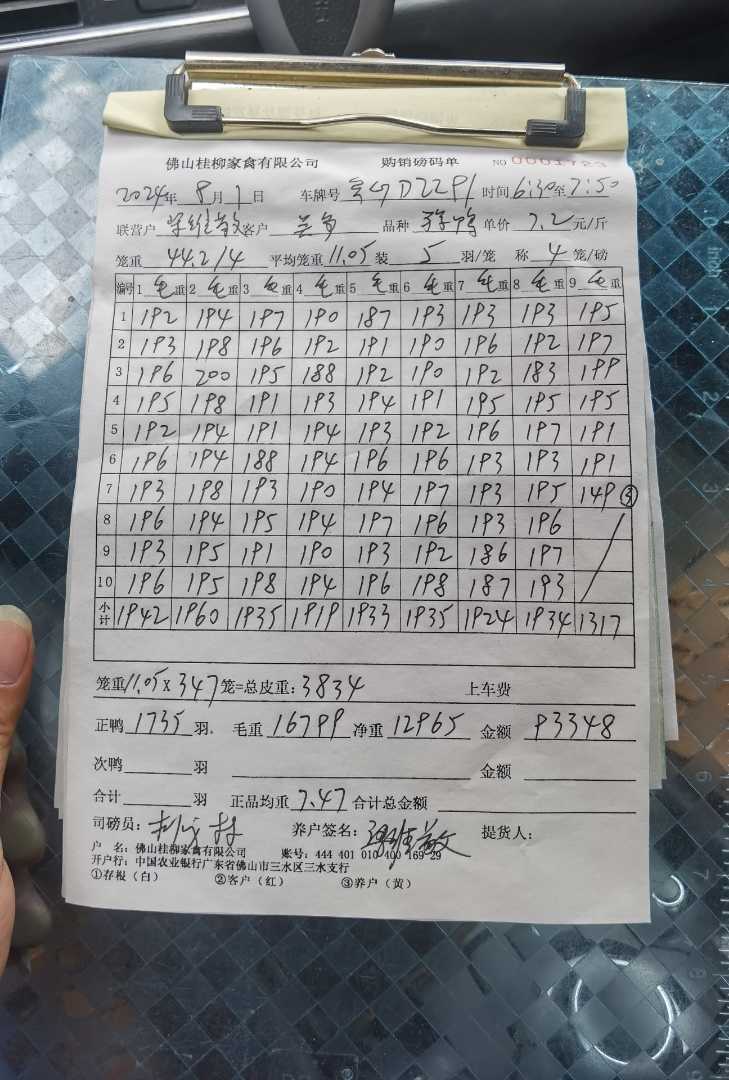 佛山桂柳家禽有限公司 购销磅码单 NO 0001723
2024年 8月1日 车牌号 D2291 时间 6:30至7:50
联营户 客户 品种 单价 7.2 元/斤
笼重 44.2/4 平均笼重 11.05 装 5 羽/笼 称 4 笼/磅
编号 1 毛重 2 毛重 3 毛重 4 毛重 5 毛重 6 毛重 7 毛重 8 毛重 9 毛重
1 192 194 197 190 187 193 193 193 195
2 193 198 196 192 191 190 196 192 197
3 196 200 195 188 192 190 192 183 199
4 195 198 191 193 194 191 195 195 195
5 192 194 191 194 193 192 196 197 191
6 196 194 188 194 196 196 193 193 191
7 193 198 193 190 194 197 193 195 149 ③
8 196 194 195 194 197 196 193 196
9 193 195 191 190 193 192 186 197
10 196 195 198 194 196 198 187 193
小计 1942 1960 1935 1919 1933 1935 1924 1934 1317
笼重 11.05 x 347 笼=总皮重: 3834 上车费
正鸭 1735 羽. 毛重 16799 净重 12965 金额 93348
次鸭 羽 金额
合计 羽 正品均重 7.47 合计总金额
司磅员: 养户签名: 提货人:
户 名: 佛山桂柳家禽有限公司 账号: 444 401 010 400 169 29
开户行: 中国农业银行广东省佛山市三水区三水支行
①存根（白） ②客户（红） ③养户（黄）